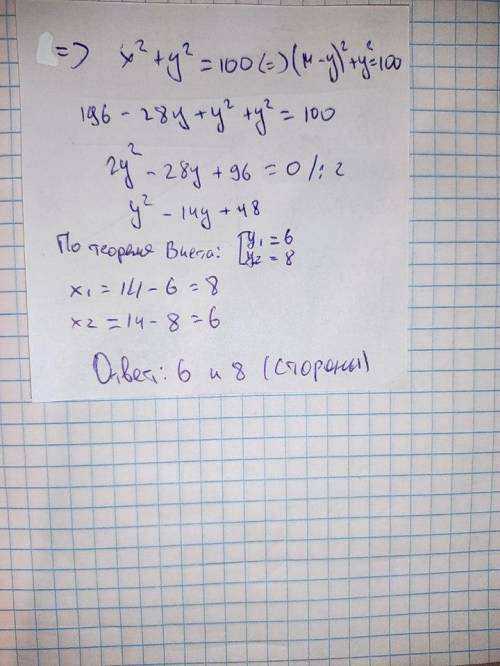 => x² + y² = 100 (=) (14 - y)² + y² = 100
196 - 28y + y² + y² = 100
2y² - 28y + 96 = 0 /: 2
y² - 14y + 48
По теореме Виета: [y₁ = 6
y₂ = 8
x₁ = 14 - 6 = 8
x₂ = 14 - 8 = 6
Ответ: 6 и 8 (стороны)